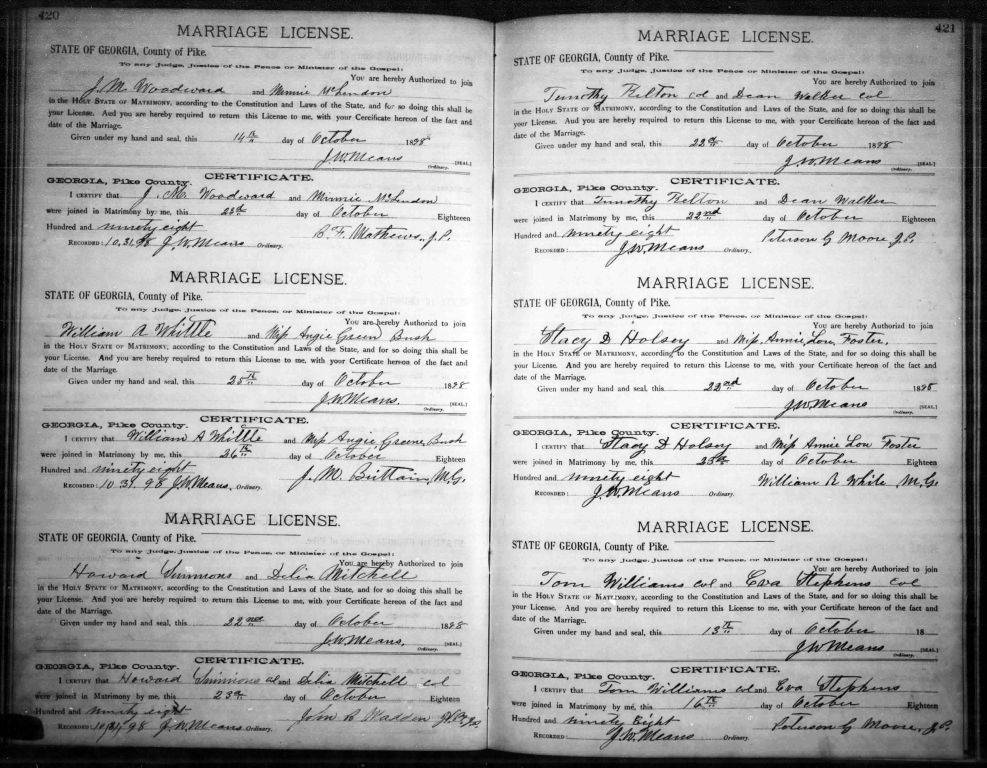 420
MARRIAGE LICENSE.
STATE OF GEORGIA, County of Pike.
To any Judge, Justice of the Peace or Minister of the Gospel:
You are hereby Authorized to join
J. M. Woodward and Minnie McLendon
in the HOLY STATE OF MATRIMONY, according to the Constitution and Laws of the State, and for so doing this shall be
your License. And you are hereby required to return this License to me, with your Certificate hereon of the fact and
date of the Marriage.
Given under my hand and seal, this 14th day of October 1898
J.W. Means [SEAL]
Ordinary.
CERTIFICATE.
GEORGIA, Pike County.
I CERTIFY that J. M. Woodward and Minnie McLendon
were joined in Matrimony by me, this day of October Eighteen
Hundred and ninety eight B. F. Mathews, J.P.
RECORDED: 10,31,98 J.W. Means Ordinary.
MARRIAGE LICENSE.
STATE OF GEORGIA, County of Pike.
To any Judge, Justice of the Peace, or Minister of the Gospel:
You are hereby Authorized to join
William A Whittle and Miss Angie Green Bush
in the HOLY STATE OF MATRIMONY, according to the Constitution and Laws of the State, and for so doing this shall be
your License. And you are hereby required to return this License to me, with your Certificate hereon of the fact and
date of the Marriage.
Given under my hand and seal, this 25th day of October 1898
J.W. Means. [SEAL.]
Ordinary.
CERTIFICATE.
GEORGIA, Pike County.
I CERTIFY that William A Whittle and Miss Angie Greene Bush
were joined in Matrimony by me, this 26th day of October Eighteen
Hundred and ninety eight J. M. Brittain, M.G.
RECORDED: 10 31, 98 J.W. Means, Ordinary.
MARRIAGE LICENSE.
STATE OF GEORGIA, County of Pike.
To any Judge, Justice of the Peace, or Minister of the Gospel:
You are hereby Authorized to join
Howard Simmons and Delia Mitchell
in the HOLY STATE OF MATRIMONY, according to the Constitution and Laws of the State, and for so doing this shall be
your License. And you are hereby required to return this License to me, with your Certificate hereon of the fact and
date of the Marriage.
Given under my hand and seal, this 22nd day of October 1898
J.W. Means, [SEAL.]
Ordinary.
CERTIFICATE.
GEORGIA, Pike County.
I CERTIFY that Howard Simmons col and Delia Mitchell col
were joined in Matrimony by me, this 23rd day of October Eighteen
Hundred and ninety eight John B Madden
RECORDED: 10/31/98 J.W. Means Ordinary.
421
MARRIAGE LICENSE.
STATE OF GEORGIA, County of Pike.
To any Judge, Justice of the Peace, or Minister of the Gospel:
You are hereby Authorized to join
Timothy Felton col and Dean Walker col
in the HOLY STATE OF MATRIMONY, according to the Constitution and Laws of the State, and for so doing this shall be
your License. And you are hereby required to return this License to me, with your Certificate hereon of the fact and
date of the Marriage.
Given under my hand and seal, this day of October 1898
J.W. Means [SEAL.]
Ordinary.
CERTIFICATE.
GEORGIA, Pike County.
I CERTIFY that Timothy Felton and Dean Walker
were joined in Matrimony by me, this 22nd day of October Eighteen
Hundred and ninety eight Peterson G Moore J.P.
RECORDED: J.W. Means Ordinary.
MARRIAGE LICENSE.
STATE OF GEORGIA, County of Pike.
To any Judge, Justice of the Peace, or Minister of the Gospel:
You are hereby Authorized to join
Stacy D Holsey and Miss Annie Lou Foster,
in the HOLY STATE OF MATRIMONY, according to the Constitution and Laws of the State, and for so doing this shall be
your License. And you are hereby required to return this License to me, with your Certificate hereon of the fact and
date of the Marriage.
Given under my hand and seal, this 22nd day of October 1898
J.W. Means [SEAL.]
Ordinary.
CERTIFICATE.
GEORGIA, Pike County.
I CERTIFY that Stacy D Holsey and Miss Annie Lou Foster
were joined in Matrimony by me, this 23rd day of October Eighteen
Hundred and ninety eight William R White M.G.
RECORDED: J.W. Means Ordinary.
MARRIAGE LICENSE.
STATE OF GEORGIA, County of Pike.
To any Judge, Justice of the Peace, or Minister of the Gospel:
You are hereby Authorized to join
Tom Williams col and Eva Stephens col
in the HOLY STATE OF MATRIMONY, according to the Constitution and Laws of the State, and for so doing this shall be
your License. And you are hereby required to return this License to me, with your Certificate hereon of the fact and
date of the Marriage.
Given under my hand and seal, this 13th day of October 18
J.W. Means [SEAL.]
Ordinary.
CERTIFICATE.
GEORGIA, Pike County.
I CERTIFY that Tom Williams col and Eva Stephens
were joined in Matrimony by me, this 16th day of October Eighteen
Hundred and ninety Eight Peterson G Moore, J.P.
RECORDED: J.W. Means Ordinary.